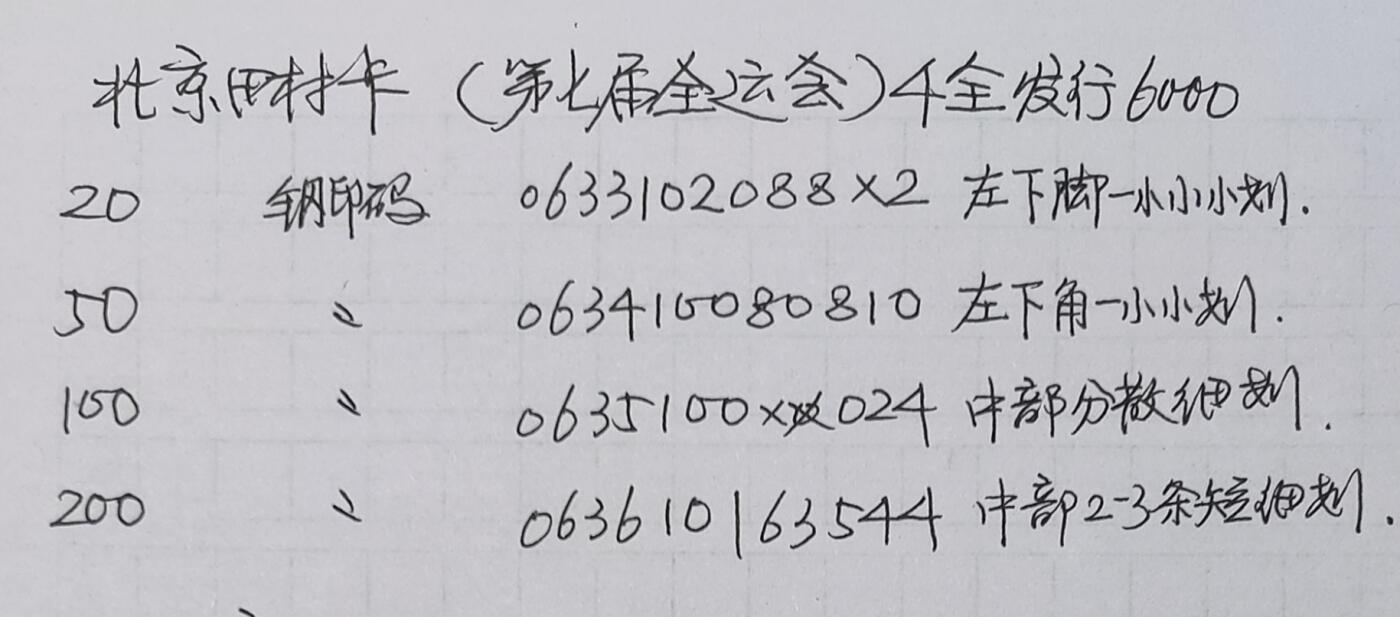 北京田村卡（第七届全运会）4全发行6000
20 钢印码 0633102088×2 左下脚一小小小划.
50 〃 063410080810 左下角一小小划.
100 〃 0635100××024 中部分散细划.
200 〃 063610163544 中部2-3条短细划.